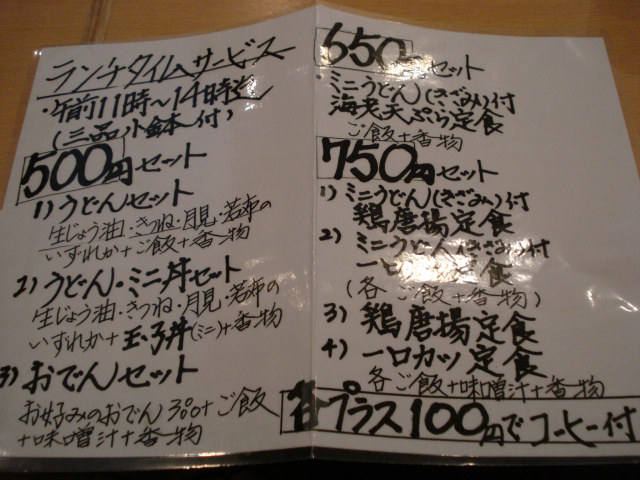 ランチタイムサービス
・午前11時~14時迄
(三品小鉢付)
500円セット
1) うどんセット
生じょう油・きつね・月見・若布の
いずれか+ご飯+香物
2) うどん・ミニ丼セット
生じょう油・きつね・月見・若布の
いずれか+玉子丼(ミニ)+香物
3) おでんセット
お好みのおでん3ヶ+ご飯
+味噌汁+香物
650円セット
・ミニうどん(きざみ)付
海老天ぷら定食
ご飯+香物
750円セット
1) ミニうどん(きざみ)付
鶏唐揚定食
2) ミニうどん(きざみ)付
一口カツ定食
(各ご飯+香物)
3) 鶏唐揚定食
4) 一口カツ定食
各ご飯+味噌汁+香物
各プラス100円でコーヒー付